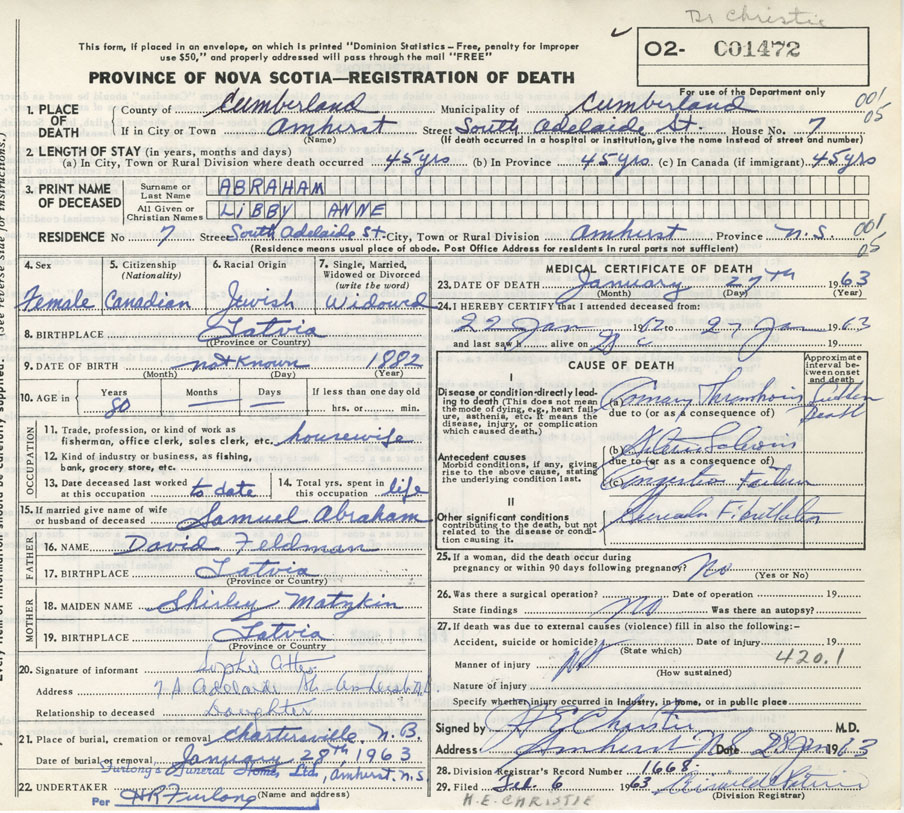 Dr Christie
This form, if placed in an envelope, on which is printed "Dominion Statistics - Free, penalty for improper
use $50," and properly addressed will pass through the mail "FREE"
O2- C01472
PROVINCE OF NOVA SCOTIA—REGISTRATION OF DEATH
For use of the Department only
1. PLACE OF DEATH
County of Cumberland Municipality of Cumberland 001
05
If in City or Town Amherst Street South Adelaide St. House No. 7
(Name) (If death occurred in a hospital or institution, give the name instead of street and number)
2. LENGTH OF STAY (in years, months and days)
(a) In City, Town or Rural Division where death occurred 45 yrs (b) In Province 45 yrs (c) In Canada (if immigrant) 45 yrs
3. PRINT NAME OF DECEASED
Surname or Last Name ABRAHAM
All Given or Christian Names LIBBY ANNE
RESIDENCE No 7 Street South Adelaide St. City, Town or Rural Division Amherst Province N.S. 001
05
(Residence means usual place of abode. Post Office Address for residents in rural parts not sufficient)
4. Sex
Female
5. Citizenship
(Nationality)
Canadian
6. Racial Origin
Jewish
7. Single, Married,
Widowed or Divorced
(write the word)
Widowed
8. BIRTHPLACE Latvia
(Province or Country)
9. DATE OF BIRTH not known 1882
(Month) (Day) (Year)
10. AGE in Years Months Days If less than one day old
80 — — hrs. or min.
OCCUPATION
11. Trade, profession, or kind of work as
fisherman, office clerk, sales clerk, etc. housewife
12. Kind of industry or business, as fishing,
bank, grocery store, etc.
13. Date deceased last worked
at this occupation to date
14. Total yrs. spent in
this occupation life
15. If married give name of wife
or husband of deceased Samuel Abraham
FATHER
16. NAME David Feldman
17. BIRTHPLACE Latvia
(Province or Country)
MOTHER
18. MAIDEN NAME Shirley Matzkin
19. BIRTHPLACE Latvia
(Province or Country)
20. Signature of informant
Address 7 S Adelaide St. Amherst N.S.
Relationship to deceased Daughter
21. Place of burial, cremation or removal Chartersville, N.B.
Date of burial or removal January 28th, 1963
Furlong's Funeral Home, Ltd., Amherst, N.S.
22. UNDERTAKER (Name and address)
Per HR Furlong
MEDICAL CERTIFICATE OF DEATH
23. DATE OF DEATH January 27th 1963
(Month) (Day) (Year)
24. I HEREBY CERTIFY that I attended deceased from:
22 Jan 1962 to 27 Jan 1963
and last saw h alive on 19
CAUSE OF DEATH
Approximate interval between onset and death
I
Disease or condition directly leading
to death (This does not mean
the mode of dying, e.g., heart failure,
asthenia, etc. It means the
disease, injury, or complication
which caused death.)
(a) Coronary Thrombosis Sudden Death
due to (or as a consequence of)
Antecedent causes
Morbid conditions, if any, giving
rise to the above cause, stating
the underlying condition last.
(b)
due to (or as a consequence of)
(c) Congestive Failure
II
Other significant conditions
contributing to the death, but not
related to the disease or condition
causing it.
25. If a woman, did the death occur during
pregnancy or within 90 days following pregnancy? No
(Yes or No)
26. Was there a surgical operation? Date of operation 19
State findings No Was there an autopsy?
27. If death was due to external causes (violence) fill in also the following:-
Accident, suicide or homicide? Date of injury 19
(State which) 420.1
Manner of injury
(How sustained)
Nature of injury
Specify whether injury occurred in Industry, in home, or in public place
Signed by H E Christie M.D.
Address Amherst N.S. Date 28 Jan 1963
28. Division Registrar's Record Number 1668
29. Filed Feb. 6 1963
(Division Registrar)
H.E. CHRISTIE
(See reverse side for instructions.)